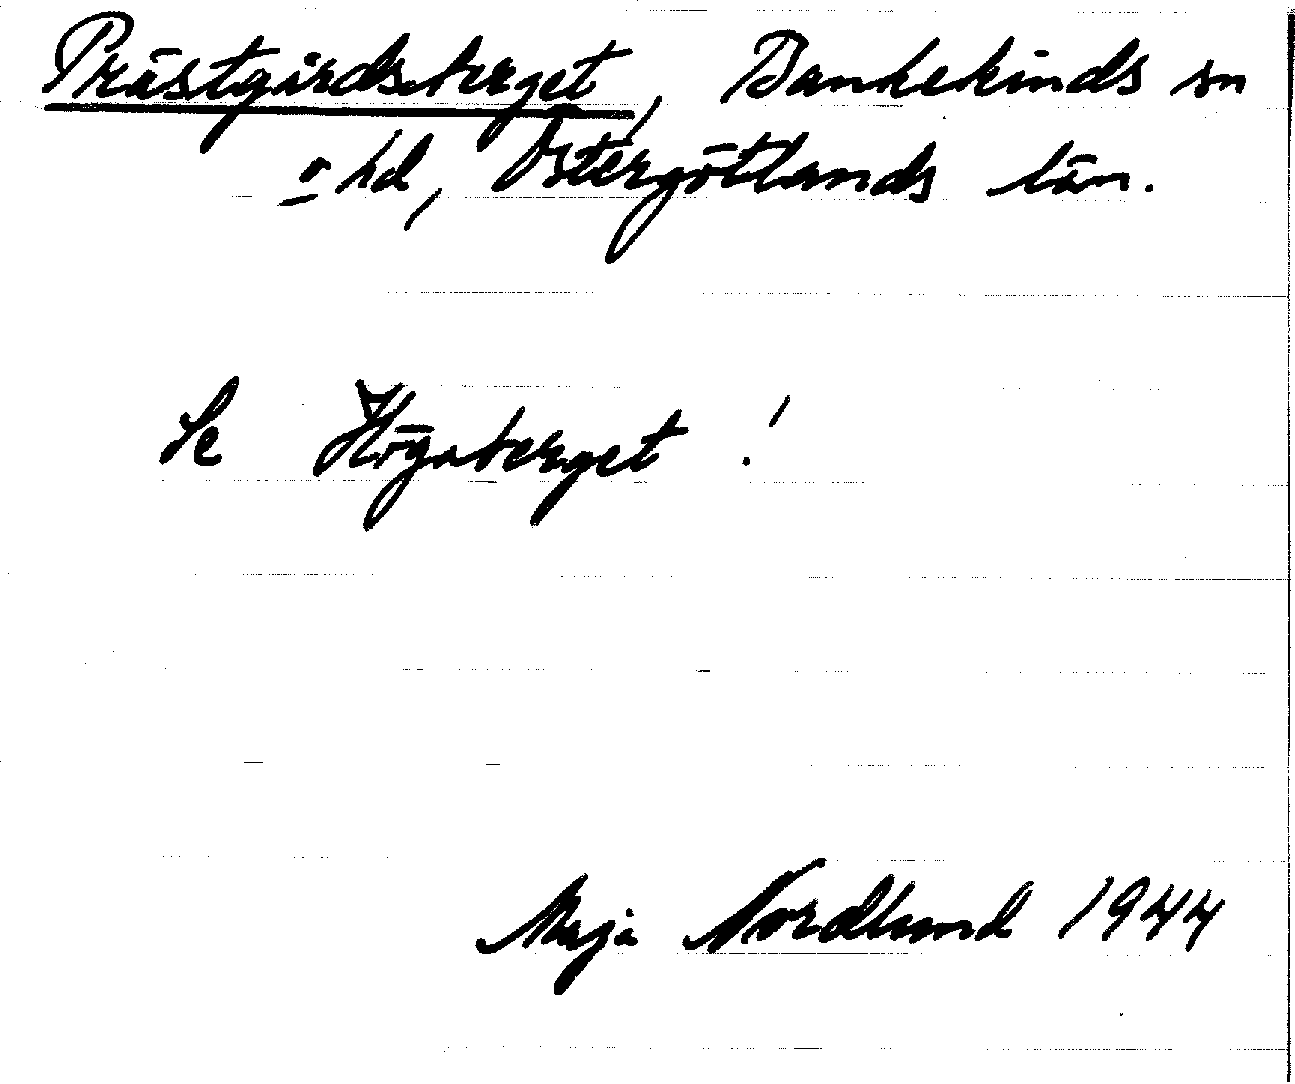 Prästgårdsberget, Bankekinds sn
o hd, Östergötlands län.
Se Högaberget!
Maja Nordlund 1944